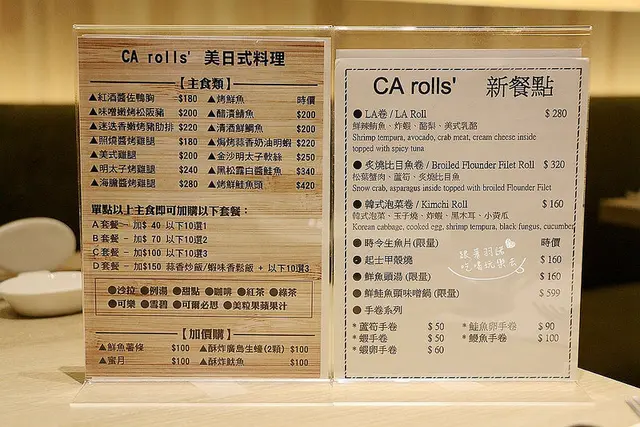 CA rolls' 美日式料理
【主食類】
▲紅酒醬佐鴨胸 $180 ▲烤鮮魚 時價
▲味噌嫩烤松阪豬 $200 ▲醋漬鯖魚 $200
▲迷迭香嫩烤豬肋排 $220 ▲清酒鮮鯛魚 $200
▲照燒醬烤雞腿 $180 ▲焗烤蒜香奶油明蝦 $220
▲美式雞腿 $200 ▲金沙明太子軟絲 $250
▲明太子烤雞腿 $240 ▲黑松露白醬鮭魚 $340
▲海膽醬烤雞腿 $280 ▲烤鮮鮭魚頭 $420
單點以上主食即可加購以下套餐：
A套餐 – 加$ 40 以下10選1
B套餐 – 加$ 70 以下10選2
C套餐 – 加$100 以下10選3
D套餐 – 加$150 蒜香炒飯/蝦味香鬆飯 + 以下10選3
●沙拉 ●例湯 ●甜點 ●咖啡 ●紅茶 ●綠茶
●可樂 ●雪碧 ●可爾必思 ●美粒果蘋果汁
【加價購】
▲鮮魚薯條 $100 ▲酥炸廣島生蠔(2顆) $100
▲蜜月 $100 ▲酥炸魷魚 $100
CA rolls' 新餐點
● LA卷 / LA Roll $ 280
鮮辣鮪魚、炸蝦、酪梨、美式乳酪
Shrimp tempura, avocado, crab meat, cream cheese inside
topped with spicy tuna
● 炙燒比目魚卷 / Broiled Flounder Filet Roll $ 320
松葉蟹肉、蘆筍、炙燒比目魚
Snow crab, asparagus inside topped with broiled Flounder Filet
● 韓式泡菜卷 / Kimchi Roll $ 160
韓式泡菜、玉子燒、炸蝦、黑木耳、小黃瓜
Korean cabbage, cooked egg, shrimp tempura, black fungus, cucumber
● 時令生魚片(限量) 時價
● 起士甲殼燒 $ 160
● 鮮魚頭湯 (限量) $ 160
● 鮮鮭魚頭味噌鍋 (限量) $ 599
● 手卷系列
* 蘆筍手卷 $ 50 * 鮭魚卵手卷 $ 90
* 蝦手卷 $ 50 * 鰻魚手卷 $ 100
* 蝦卵手卷 $ 60
跟著羽諾
吃喝玩樂去